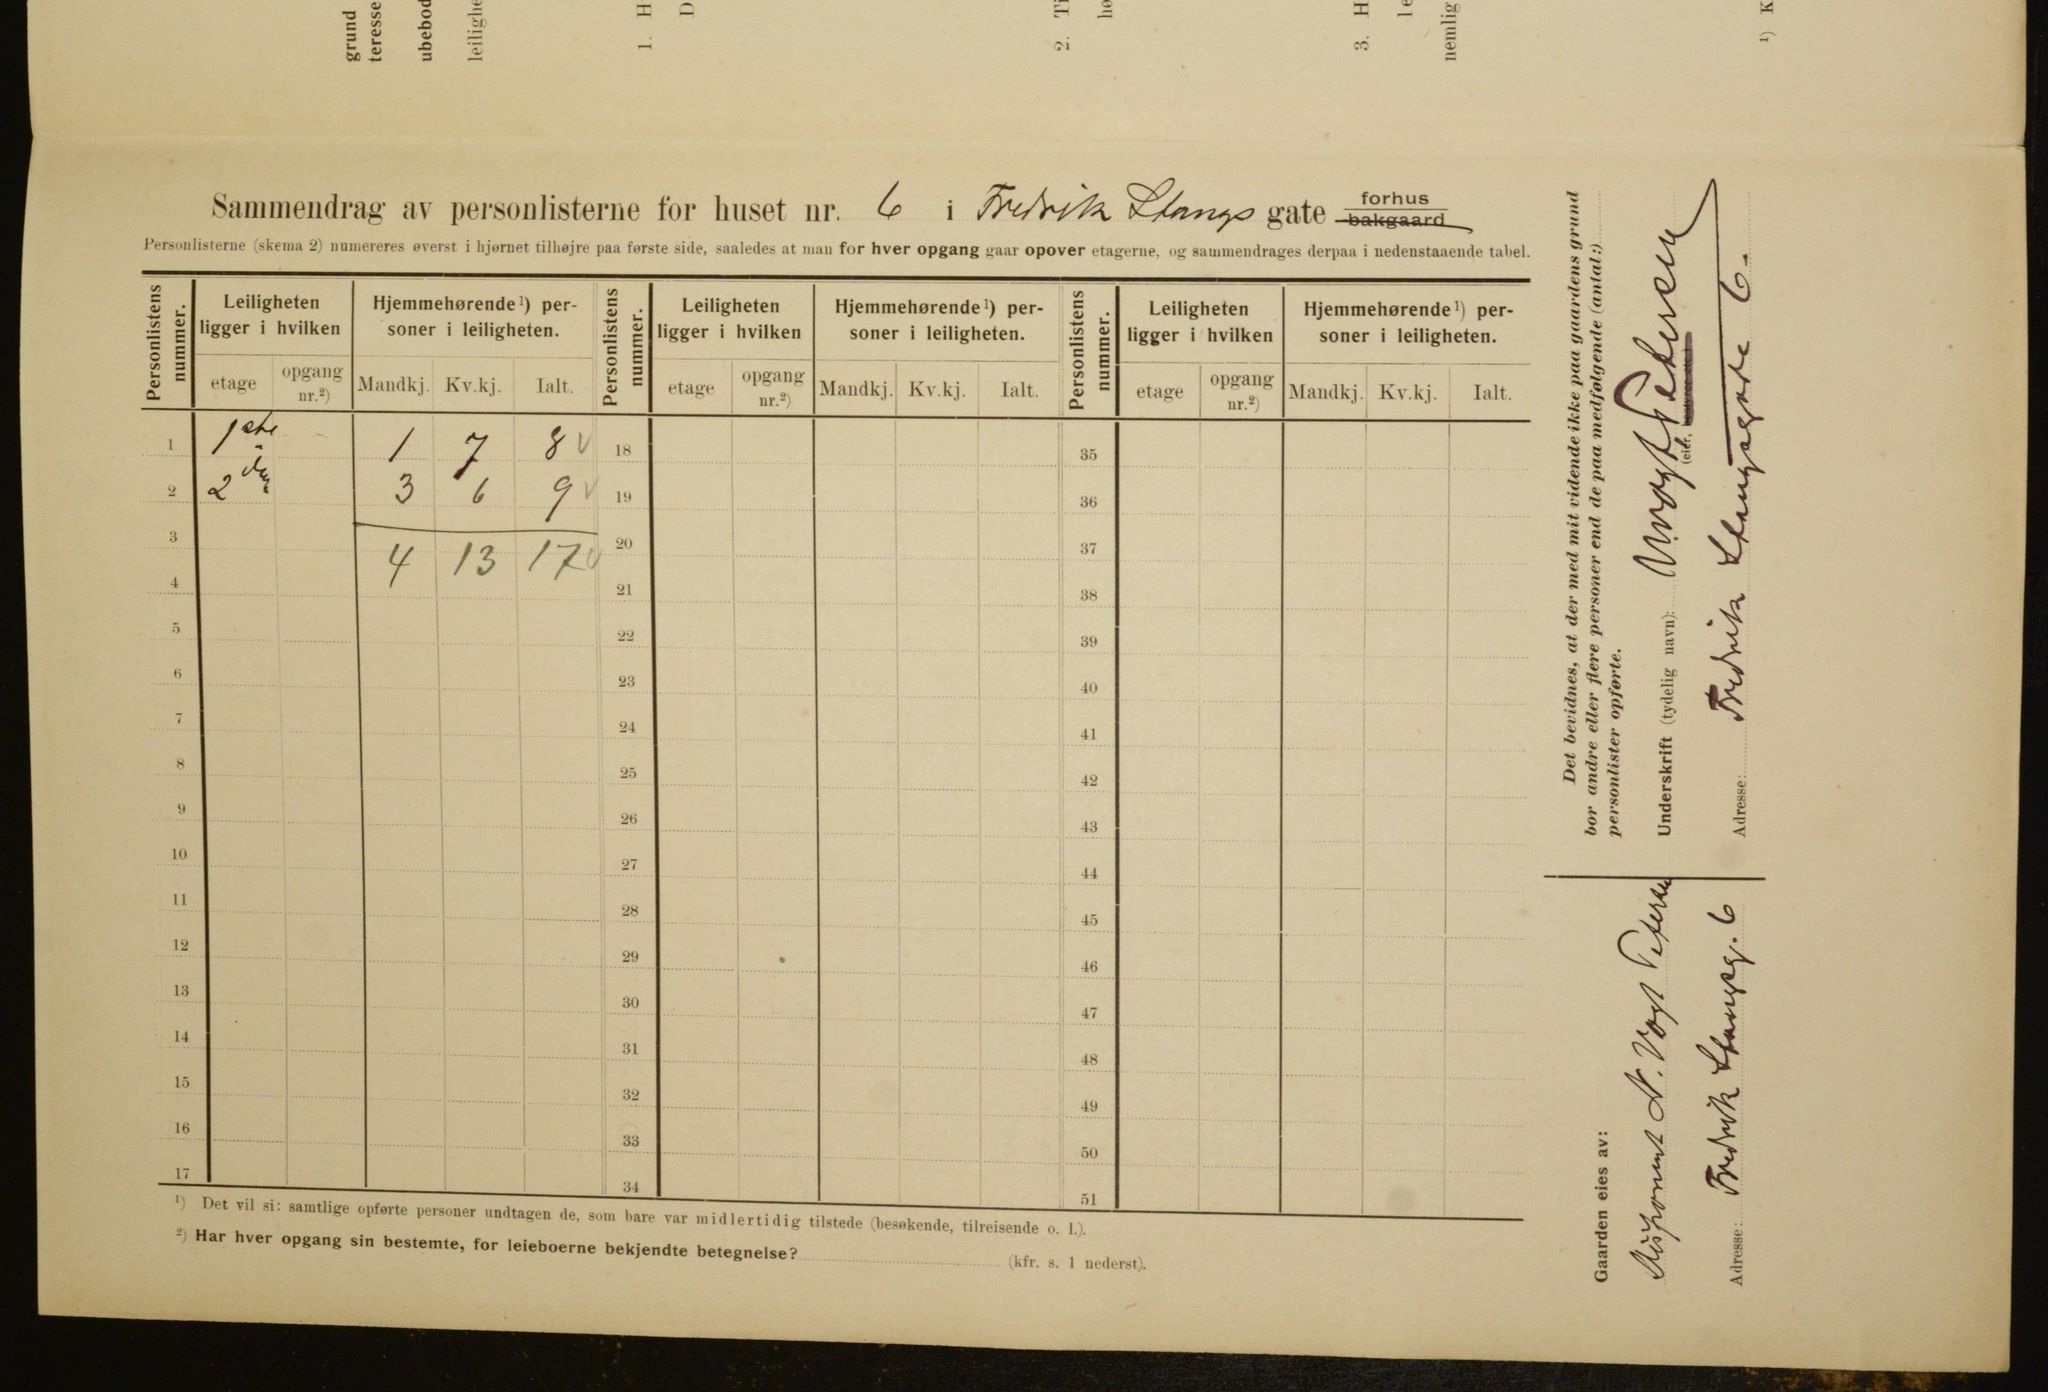 grund
teresse
ubebod
leilighe
1. H
D
2. Ti
hø
3. H
le
nemlig
¹) K
Sammendrag av personlisterne for huset nr. 6 i Fredrik Stangs gate forhus
bakgaard
Personlisterne (skema 2) numereres øverst i hjørnet tilhøjre paa første side, saaledes at man for hver opgang gaar opover etagerne, og sammendrages derpaa i nedenstaaende tabel.
Personlistens nummer. Leiligheten ligger i hvilken Hjemmehørende ¹) personer i leiligheten. Personlistens nummer. Leiligheten ligger i hvilken Hjemmehørende ¹) personer i leiligheten. Personlistens nummer. Leiligheten ligger i hvilken Hjemmehørende ¹) personer i leiligheten.
etage opgang nr.²) Mandkj. Kv.kj. Ialt. etage opgang nr.²) Mandkj. Kv.kj. Ialt. etage opgang nr.²) Mandkj. Kv.kj. Ialt.
1 1ste 1 7 8 18 35
2 2den 3 6 9 19 36
3 4 13 17 20 37
4 21 38
5 22 39
6 23 40
7 24 41
8 25 42
9 26 43
10 27 44
11 28 45
12 29 46
13 30 47
14 31 48
15 32 49
16 33 50
17 34 51
¹) Det vil si: samtlige opførte personer undtagen de, som bare var midlertidig tilstede (besøkende, tilreisende o. l.).
²) Har hver opgang sin bestemte, for leieboerne bekjendte betegnelse? (kfr. s. 1 nederst).
Det bevidnes, at der med mit vidende ikke paa gaardens grund
bor andre eller flere personer end de paa medfølgende (antal:)
personlister opførte.
Underskrift (tydelig navn): N Vogt Petersen
(eier,
Adresse: Fredrik Stangsgade 6.
Gaarden eies av:
Disponent N. Vogt Petersen
Adresse: Fredrik Stangsg. 6